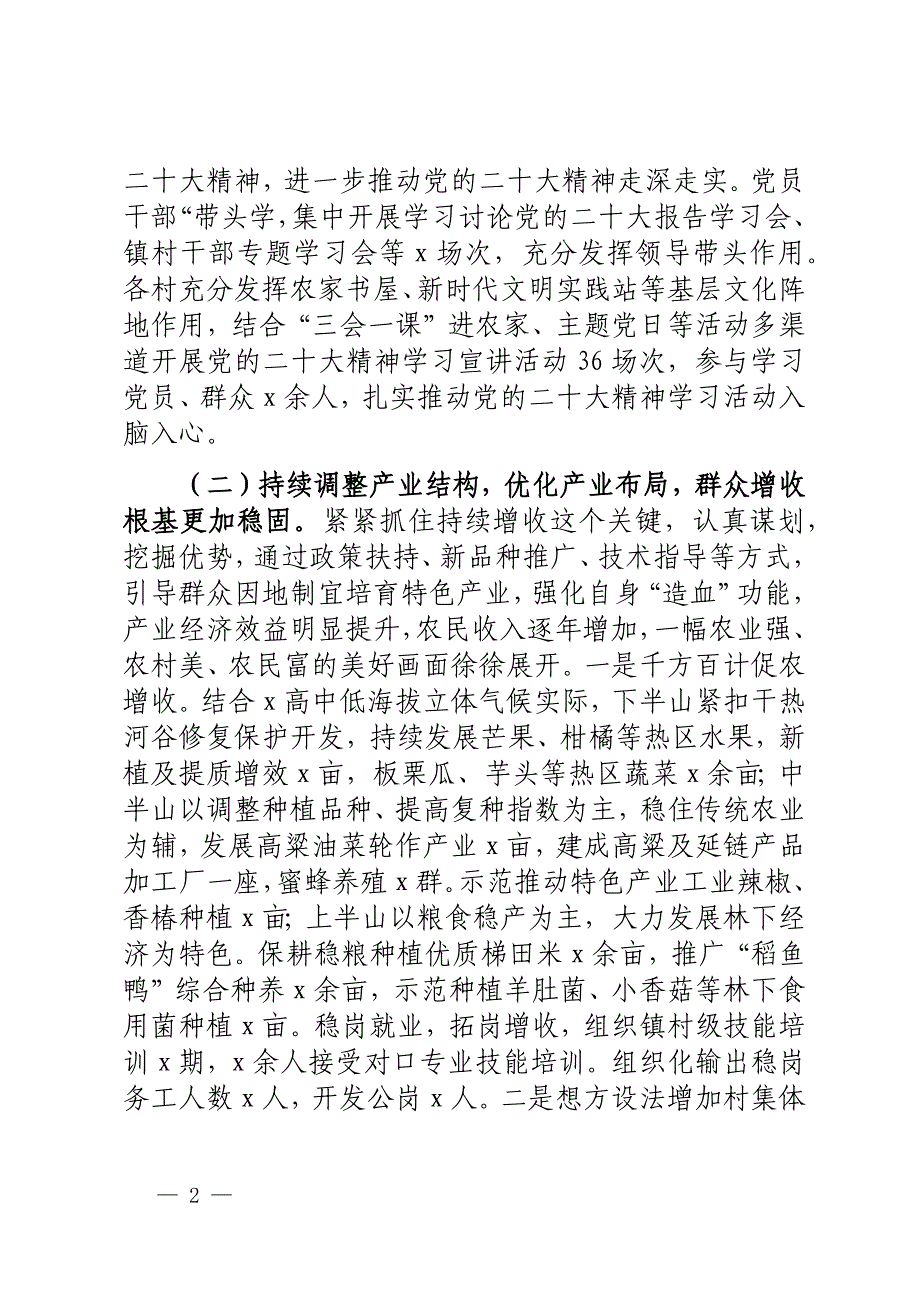 二十大精神，进一步推动党的二十大精神走深走实。党员
干部“带头学，集中开展学习讨论党的二十大报告学习会、
镇村干部专题学习会等 x 场次，充分发挥领导带头作用。
各村充分发挥农家书屋、新时代文明实践站等基层文化阵
地作用，结合“三会一课”进农家、主题党日等活动多渠
道开展党的二十大精神学习宣讲活动 36 场次，参与学习
党员、群众 x 余人，扎实推动党的二十大精神学习活动入
脑入心。
（二）持续调整产业结构，优化产业布局，群众增收
根基更加稳固。紧紧抓住持续增收这个关键，认真谋划，
挖掘优势，通过政策扶持、新品种推广、技术指导等方式，
引导群众因地制宜培育特色产业，强化自身“造血”功能，
产业经济效益明显提升，农民收入逐年增加，一幅农业强、
农村美、农民富的美好画面徐徐展开。一是千方百计促农
增收。结合 x 高中低海拔立体气候实际，下半山紧扣干热
河谷修复保护开发，持续发展芒果、柑橘等热区水果，新
植及提质增效 x 亩，板栗瓜、芋头等热区蔬菜 x 余亩；中
半山以调整种植品种、提高复种指数为主，稳住传统农业
为辅，发展高粱油菜轮作产业 x 亩，建成高粱及延链产品
加工厂一座，蜜蜂养殖 x 群。示范推动特色产业工业辣椒、
香椿种植 x 亩；上半山以粮食稳产为主，大力发展林下经
济为特色。保耕稳粮种植优质梯田米 x 余亩，推广“稻鱼
鸭”综合种养 x 余亩，示范种植羊肚菌、小香菇等林下食
用菌种植 x 亩。稳岗就业，拓岗增收，组织镇村级技能培
训 x 期，x 余人接受对口专业技能培训。组织化输出稳岗
务工人数 x 人，开发公岗 x 人。二是想方设法增加村集体
— 2 —